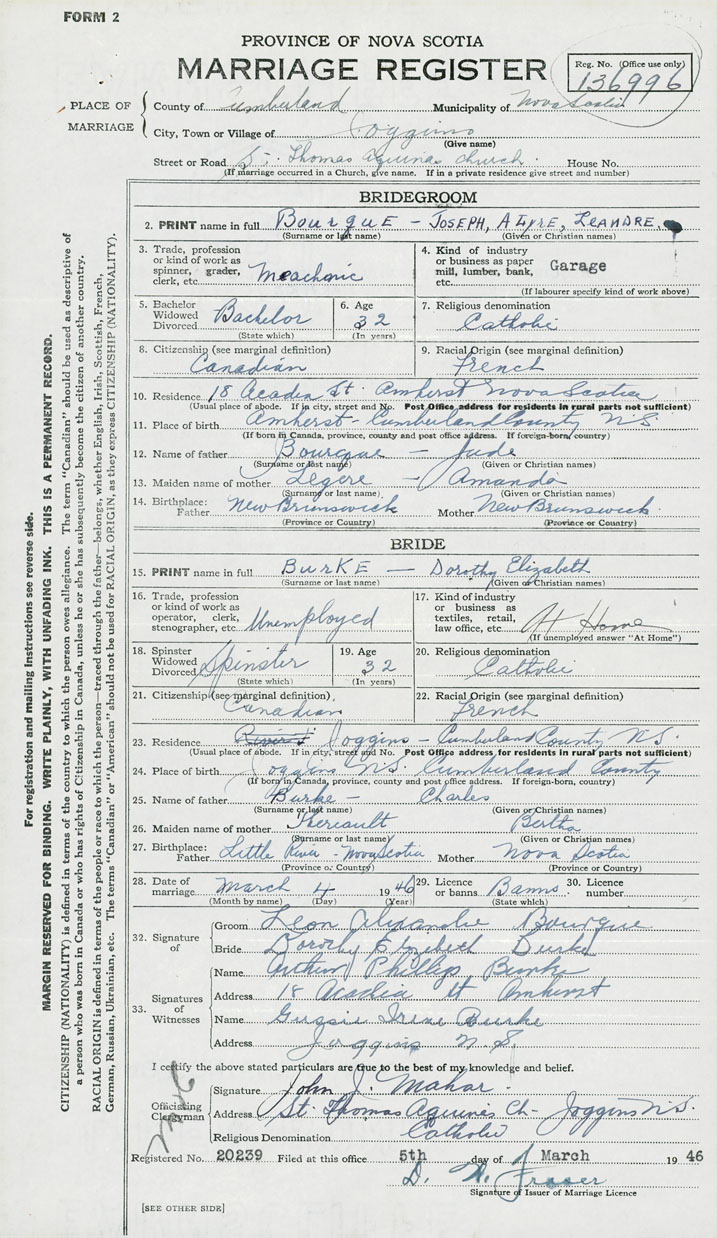 FORM 2
PROVINCE OF NOVA SCOTIA
MARRIAGE REGISTER
Reg. No. (Office use only)
136996
PLACE OF MARRIAGE
County of Cumberland Municipality of Nova Scotia
City, Town or Village of Joggins
(Give name)
Street or Road St. Thomas Aquinas Church House No.
(If marriage occurred in a Church, give name. If in a private residence give street and number)
BRIDEGROOM
2. PRINT name in full BourguE – JOSEPH, LEANDRE.
(Surname or last name) (Given or Christian names)
3. Trade, profession or kind of work as spinner, grader, clerk, etc. Meachanic
4. Kind of industry or business as paper mill, lumber, bank, etc. Garage
(If labourer specify kind of work above)
5. Bachelor Widowed Divorced Bachelor
(State which)
6. Age 32
(In years)
7. Religious denomination Catholic
8. Citizenship (see marginal definition) Canadian
9. Racial Origin (see marginal definition) French
10. Residence 18 Acadia St. Amherst Nova Scotia
(Usual place of abode. If in city, street and No. Post Office address for residents in rural parts not sufficient)
11. Place of birth Amherst - Cumberland County N.S.
(If born in Canada, province, county and post office address. If foreign-born, country)
12. Name of father Bourgue – Jude
(Surname or last name) (Given or Christian names)
13. Maiden name of mother Legere – Amanda
(Surname or last name) (Given or Christian names)
14. Birthplace: Father New Brunswick Mother New Brunswick
(Province or Country) (Province or Country)
BRIDE
15. PRINT name in full BurKE – Dorothy Elizabeth
(Surname or last name) (Given or Christian names)
16. Trade, profession or kind of work as operator, clerk, stenographer, etc. Unemployed
17. Kind of industry or business as textiles, retail, law office, etc. At Home
(If unemployed answer "At Home")
18. Spinster Widowed Divorced Spinster
(State which)
19. Age 32
(In years)
20. Religious denomination Catholic
21. Citizenship (see marginal definition) Canadian
22. Racial Origin (see marginal definition) French
23. Residence Joggins – Cumberland County, N.S.
(Usual place of abode. If in city, street and No. Post Office address, for residents in rural parts not sufficient)
24. Place of birth Joggins N.S. Cumberland County
(If born in Canada, province, county and post office address. If foreign-born, country)
25. Name of father Burke – Charles
(Surname or last name) (Given or Christian names)
26. Maiden name of mother Theriault Bertha
(Surname or last name) (Given or Christian names)
27. Birthplace: Father Little River - Nova Scotia Mother Nova Scotia
(Province or Country) (Province or Country)
28. Date of marriage March 4 1946
(Month by name) (Day) (Year)
29. Licence or banns Banns
(State which)
30. Licence number
32. Signature of
Groom Leon Bourgue
Bride Dorothy Elizabeth Burke
33. Signatures of Witnesses
Name Arthur Phillip Burke
Address 18 Acadia St Amherst
Name Irene Burke
Address Joggins N.S.
I certify the above stated particulars are true to the best of my knowledge and belief.
Officiating Clergyman
Signature John J. Mahar.
Address St. Thomas Aquines Ch– Joggins N.S.
Religious Denomination Catholic
Registered No. 20239 Filed at this office 5th day of March 1946
Fraser
Signature of Issuer of Marriage Licence
[SEE OTHER SIDE]
For registration and mailing instructions see reverse side.
MARGIN RESERVED FOR BINDING. WRITE PLAINLY, WITH UNFADING INK. THIS IS A PERMANENT RECORD.
CITIZENSHIP (NATIONALITY) is defined in terms of the country to which the person owes allegiance. The term "Canadian" should be used as descriptive of
a person who was born in Canada or who has rights of Citizenship in Canada, unless he or she has subsequently become the citizen of another country.
RACIAL ORIGIN is defined in terms of the people or race to which the person—traced through the father—belongs, whether English, Irish, Scottish, French,
German, Russian, Ukrainian, etc. The terms "Canadian" or "American" should not be used for RACIAL ORIGIN, as they express CITIZENSHIP (NATIONALITY).